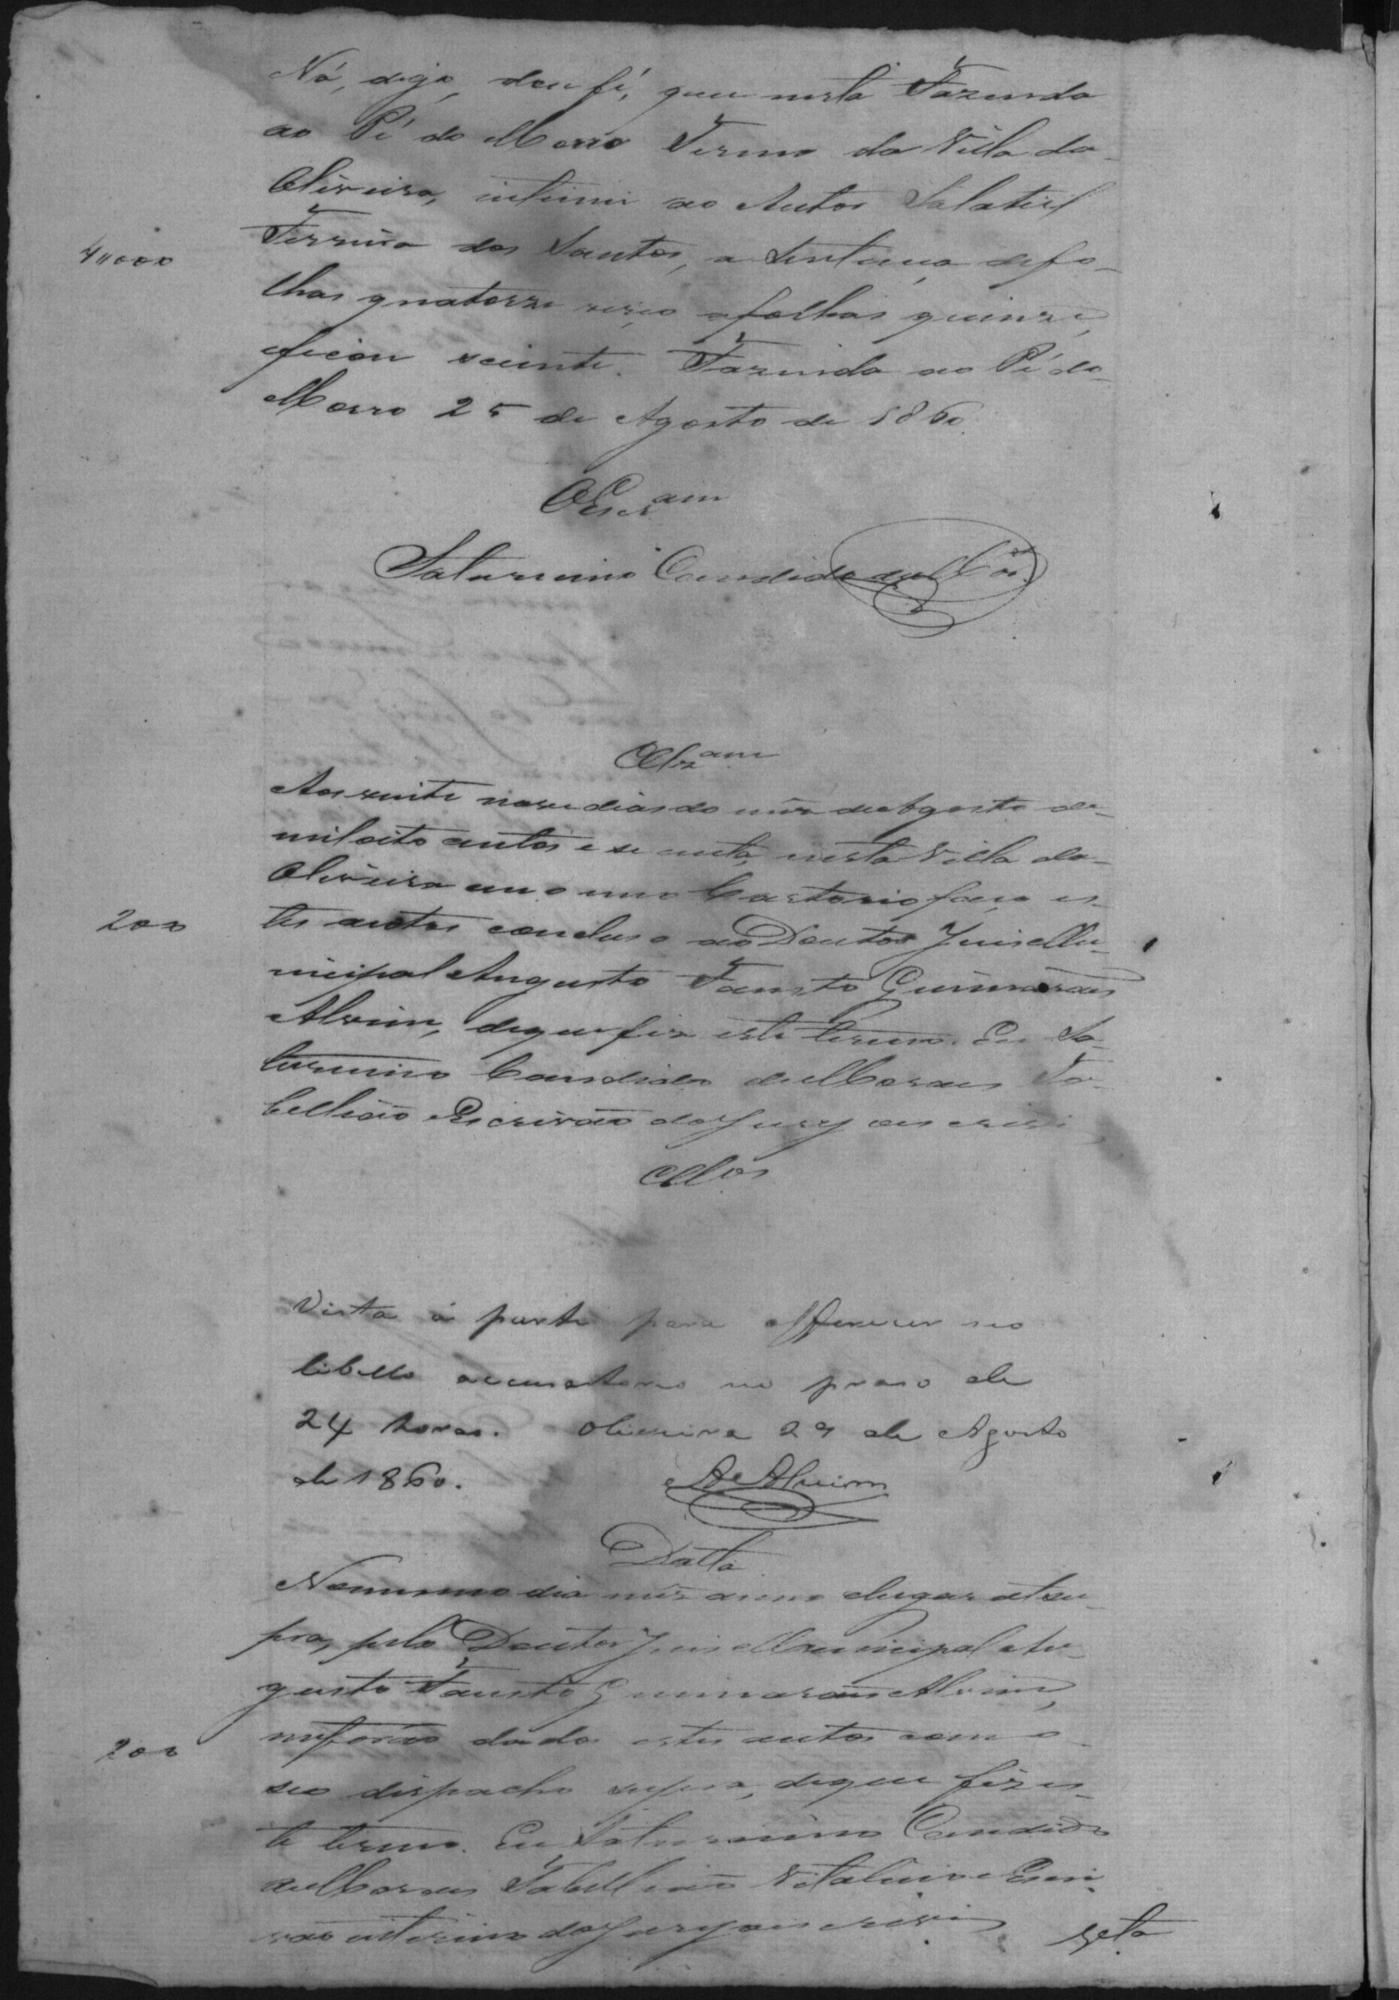 Nó, digo, dou fé, que nesta Fazenda
ao Pé do Morro Termo da Villa da
Oliveira, intimei ao Autor Salatiel
Ferreira dos Santos, a Sentença de fo-
4000
lhas quatorze verso a folhas quinze,
ficou sciente. Fazenda ao Pé do
Morro 25 de Agosto de 1860
O Escr.am
Saturnino Candido de
Clz.am
Aos vinte nove dias do mez de Agosto de
mil oito centos e secenta, nesta Villa da
Oliveira em o meu Cartorio faço es-
200
tes autos concluso ao Doutor Juis Mu-
nicipal Augusto Fausto Guimarães
Alvim, de que fiz este termo. Eu Sa-
turnino Candido de Moraes Ta-
bellião Escrivão do Jury o escrevi
Clos
Vista á parte para offerecer seo
libello accusatorio no praso de
24 horas. Oliveira 29 de Agosto
de 1860. Alvim
Datta
No mesmo dia mez anno e lugar retro su-
pra, pelo Doutor Juis Municipal Au-
gusto Fausto Guimarães Alvim,
200
me forão dados estes autos com o
seo dispacho supra, de que fiz es-
te termo. Eu, Saturnino Candido
de Moraes Tabellião Vitalicio e Escri-
vão interino do Jury o escrevi